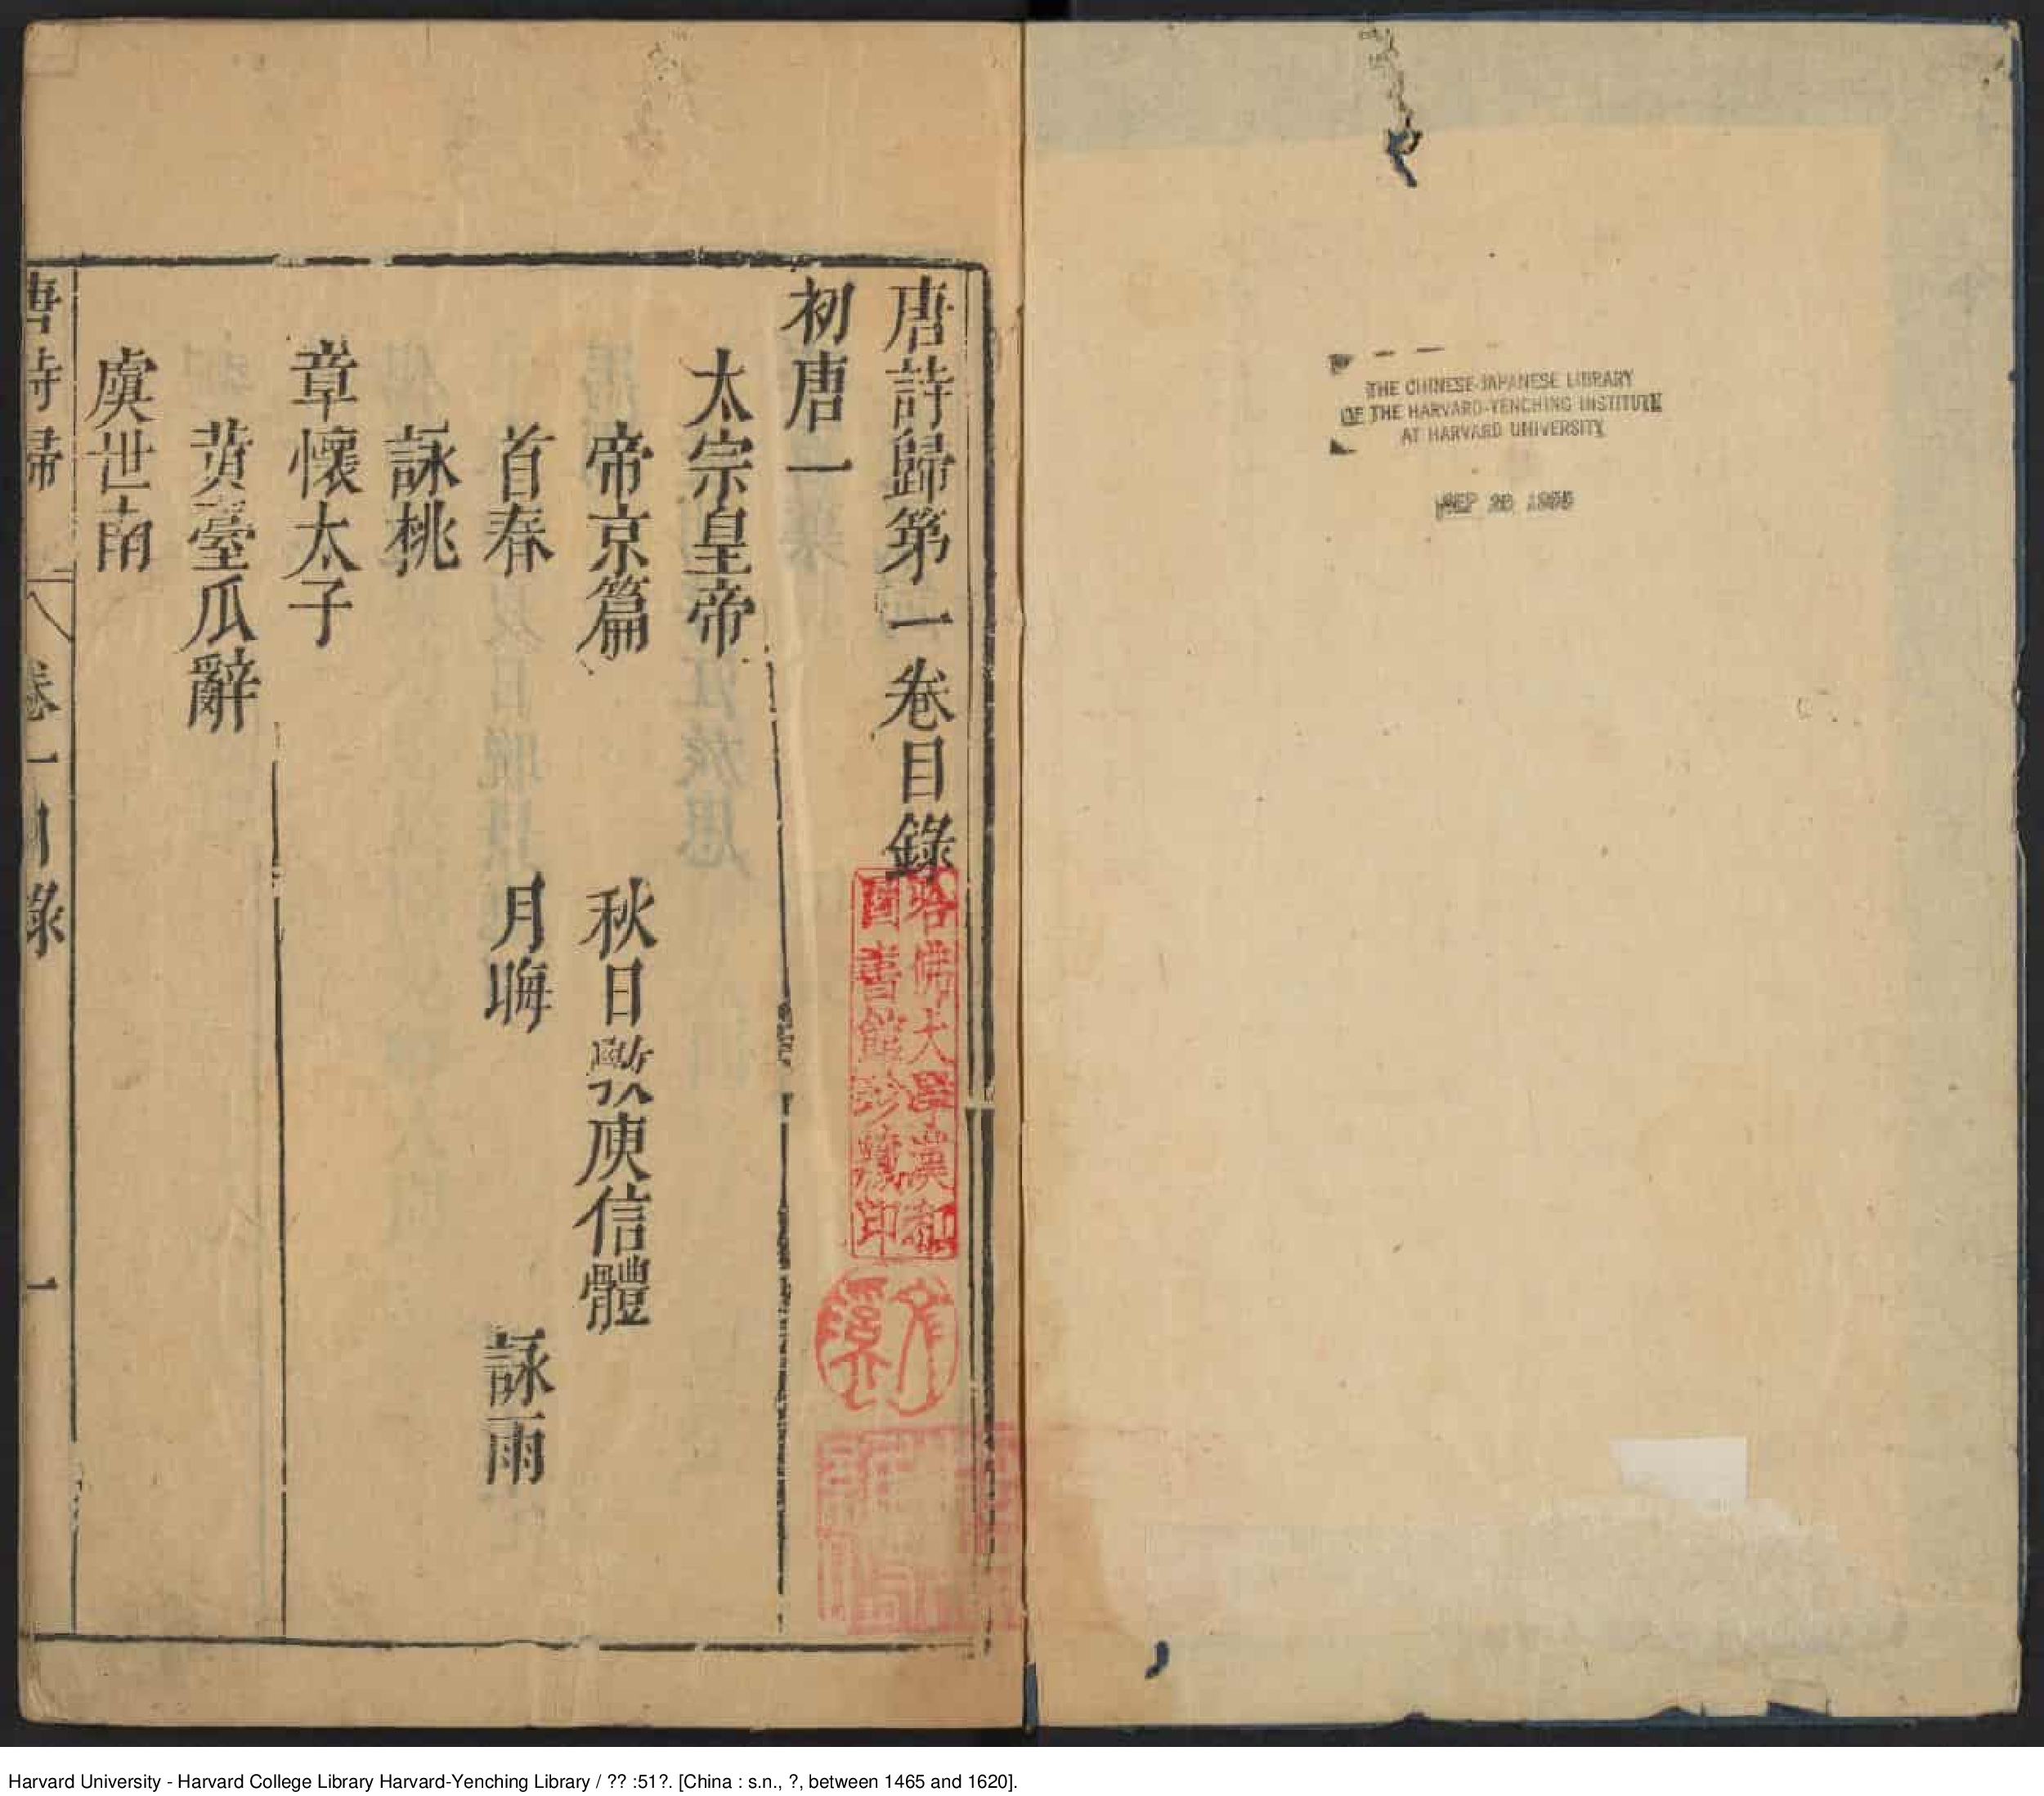 唐詩歸第一卷目錄
初唐一
太宗皇帝
帝京篇 秋日斆庾信體
首春 月晦 詠雨
詠桃
章懷太子
黃臺瓜辭
虞世南
唐詩歸 卷一目錄 一
哈佛大學漢和
圖書館珍藏印
THE CHINESE-JAPANESE LIBRARY
OF THE HARVARD-YENCHING INSTITUTE
AT HARVARD UNIVERSITY
SEP
Harvard University - Harvard College Library Harvard-Yenching Library / ?? :51?. [China : s.n., ?, between 1465 and 1620].